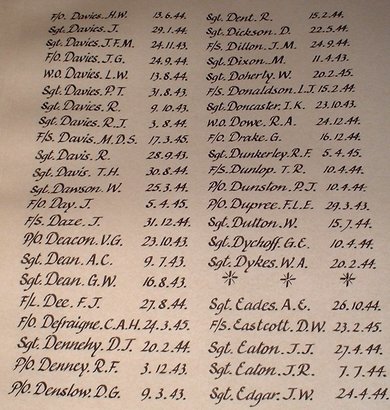 F/O. Davies. H.W. 13.6.44.
Sgt. Davies. J. 29.1.44.
Sgt. Davies. J.F.M. 24.11.43.
F/O. Davies. J.G. 24.9.44.
W.O. Davies. L.W. 13.8.44.
Sgt. Davies. P.T. 31.8.43.
Sgt. Davies. R. 9.10.43.
Sgt. Davies. R.J. 3.8.44.
F/S. Davis. M.D.S. 17.3.45.
Sgt. Davis. R. 28.9.43.
Sgt. Davis. T.H. 30.8.44.
Sgt. Dawson. W. 25.3.44.
F/O. Day. J. 5.4.45.
F/S. Daze. J. 31.12.44.
P/O. Deacon. V.G. 23.10.43.
Sgt. Dean. A.C. 9.7.43.
Sgt. Dean. G.W. 16.8.43.
F/L. Dee. F.J. 27.8.44.
F/O. Defraigne. C.A.H. 24.3.45.
Sgt. Dennehy. D.J. 20.2.44.
P/O. Denney. R.F. 3.12.43.
P/O. Denslow. D.G. 9.3.43.
Sgt. Dent. R. 15.2.44.
Sgt. Dickson. D. 22.5.44.
F/S. Dillon. J.M. 24.9.44.
Sgt. Dixon. M. 11.4.43.
Sgt. Doherly. W. 20.2.45.
F/S. Donaldson. L.J. 15.2.44.
Sgt. Doncaster. I.K. 23.10.43.
W.O. Dowe. R.A. 24.12.44.
F/O. Drake. G. 16.12.44.
Sgt. Dunkerley. R.F. 5.4.45.
F/S. Dunlop. T.R. 10.4.44.
P/O. Dunston. P.J. 10.4.44.
P/O. Dupree. F.L.E. 29.3.43.
Sgt. Dutton. W. 15.7.44.
Sgt. Dychoff. G.E. 10.4.44.
Sgt. Dykes. W.A. 20.2.44.
Sgt. Eades. A.E. 26.10.44.
F/S. Eastcott. D.W. 23.2.45.
Sgt. Eaton. J.J. 27.4.44.
Sgt. Eaton. J.R. 7.7.44.
Sgt. Edgar. J.W. 24.4.44.